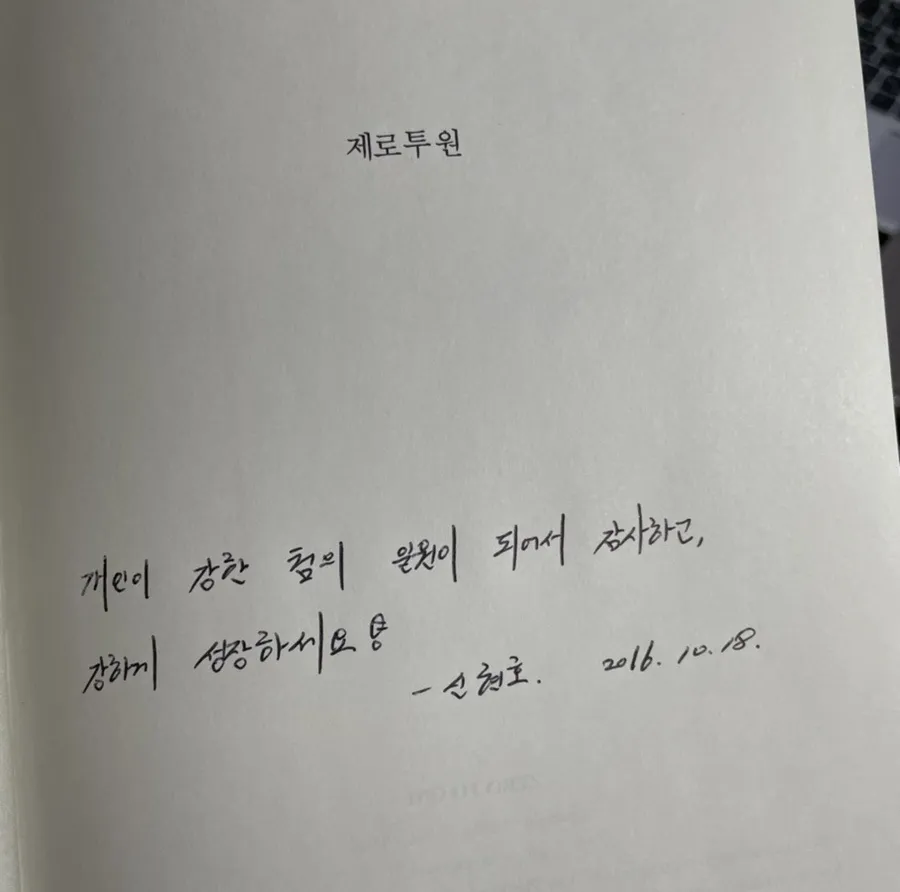 제로투원
개인이 강한 팀의 일원이 되어서 감사하고,
강하게 성장하세요
- 신현호. 2016. 10. 18.